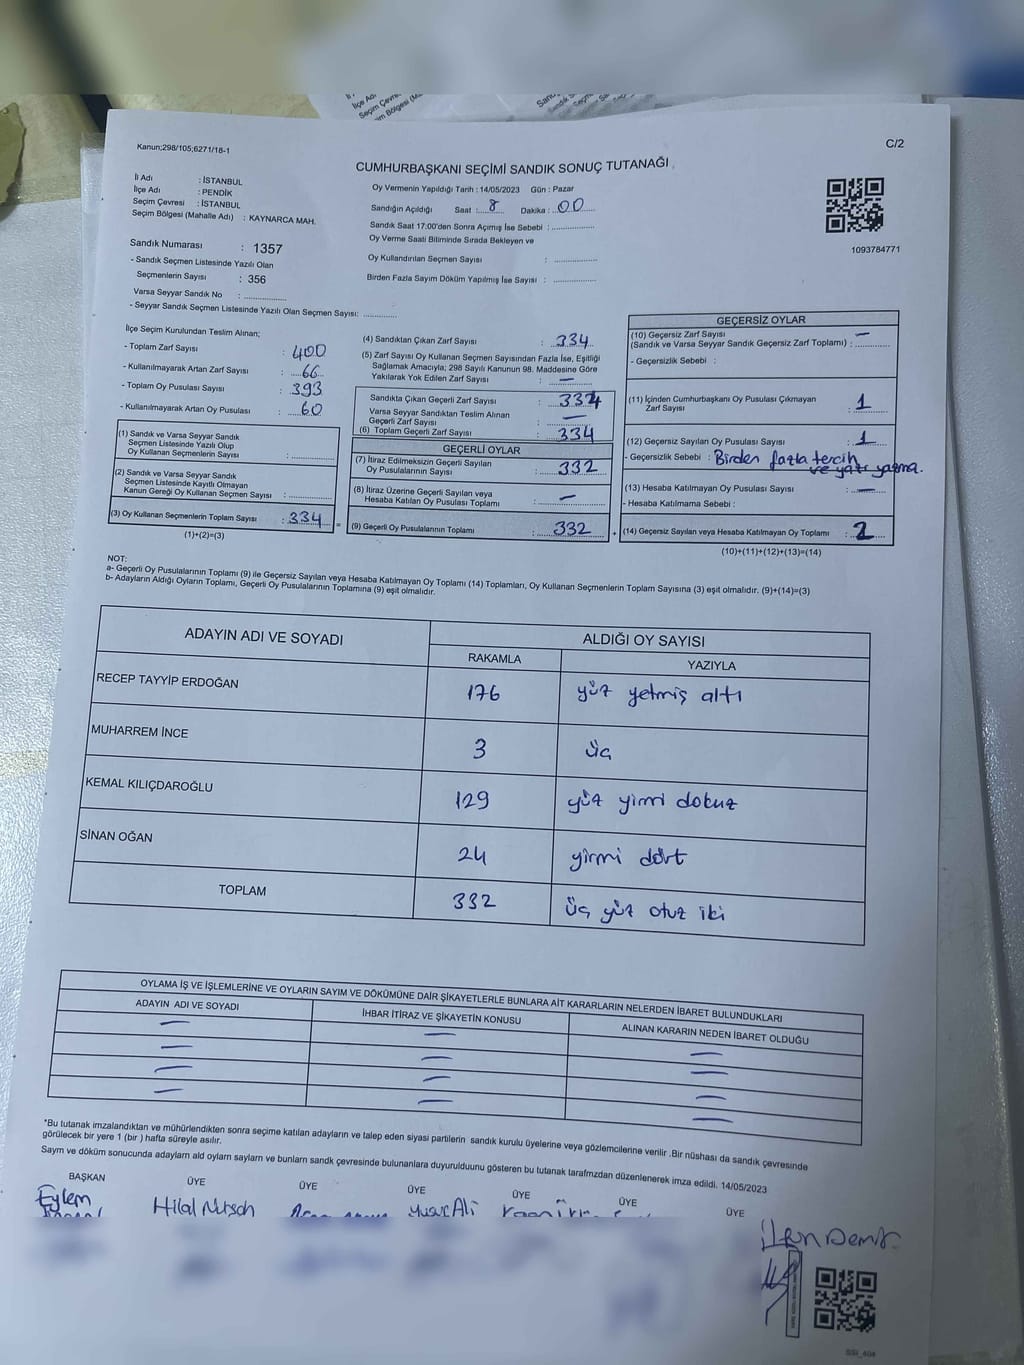 Kanun;298/105;6271/18-1
C/2
CUMHURBAŞKANI SEÇİMİ SANDIK SONUÇ TUTANAĞI
İl Adı : İSTANBUL
İlçe Adı : PENDİK
Seçim Çevresi : İSTANBUL
Seçim Bölgesi (Mahalle Adı) : KAYNARCA MAH.
Sandık Numarası : 1357
- Sandık Seçmen Listesinde Yazılı Olan
Seçmenlerin Sayısı : 356
Varsa Seyyar Sandık No : ..............
- Seyyar Sandık Seçmen Listesinde Yazılı Olan Seçmen Sayısı: ............
Oy Vermenin Yapıldığı Tarih : 14/05/2023 Gün : Pazar
Sandığın Açıldığı Saat : 8 Dakika : 00
Sandık Saat 17.00'den Sonra Açımış İse Sebebi : ..............
Oy Verme Saati Biliminde Sırada Bekleyen ve
Oy Kullandırılan Seçmen Sayısı : ..............
Birden Fazla Sayım Döküm Yapılmış İse Sayısı : ..............
1093784771
İlçe Seçim Kurulundan Teslim Alınan;
- Toplam Zarf Sayısı : 400
- Kullanılmayarak Artan Zarf Sayısı : 66
- Toplam Oy Pusulası Sayısı : 393
- Kullanılmayarak Artan Oy Pusulası : 60
(1) Sandık ve Varsa Seyyar Sandık
Seçmen Listesinde Yazılı Olup
Oy Kullanan Seçmenlerin Sayısı : ..............
(2) Sandık ve Varsa Seyyar Sandık
Seçmen Listesinde Kayıtlı Olmayan
Kanun Gereği Oy Kullanan Seçmen Sayısı : ..............
(3) Oy Kullanan Seçmenlerin Toplam Sayısı : 334 =
(1)+(2)=(3)
(4) Sandıktan Çıkan Zarf Sayısı : 334
(5) Zarf Sayısı Oy Kullanan Seçmen Sayısından Fazla İse, Eşitliği
Sağlamak Amacıyla; 298 Sayılı Kanunun 98. Maddesine Göre
Yakılarak Yok Edilen Zarf Sayısı : —
Sandıkta Çıkan Geçerli Zarf Sayısı : 334
Varsa Seyyar Sandıktan Teslim Alınan
Geçerli Zarf Sayısı : —
(6) Toplam Geçerli Zarf Sayısı : 334
GEÇERLİ OYLAR
(7) İtiraz Edilmeksizin Geçerli Sayılan
Oy Pusulalarının Sayısı : 332
(8) İtiraz Üzerine Geçerli Sayılan veya
Hesaba Katılan Oy Pusulası Toplamı : —
(9) Geçerli Oy Pusulalarının Toplamı : 332 +
GEÇERSİZ OYLAR
(10) Geçersiz Zarf Sayısı
(Sandık ve Varsa Seyyar Sandık Geçersiz Zarf Toplamı) : —
- Geçersizlik Sebebi :
(11) İçinden Cumhurbaşkanı Oy Pusulası Çıkmayan
Zarf Sayısı : 1
(12) Geçersiz Sayılan Oy Pusulası Sayısı : 1
- Geçersizlik Sebebi : Birden fazla tercih
ve yazı yazma.
(13) Hesaba Katılmayan Oy Pusulası Sayısı : —
- Hesaba Katılmama Sebebi :
(14) Geçersiz Sayılan veya Hesaba Katılmayan Oy Toplamı : 2
(10)+(11)+(12)+(13)=(14)
NOT:
a- Geçerli Oy Pusulalarının Toplamı (9) ile Geçersiz Sayılan veya Hesaba Katılmayan Oy Toplamı (14) Toplamları, Oy Kullanan Seçmenlerin Toplam Sayısına (3) eşit olmalıdır. (9)+(14)=(3)
b- Adayların Aldığı Oyların Toplamı, Geçerli Oy Pusulalarının Toplamına (9) eşit olmalıdır.
ADAYIN ADI VE SOYADI ALDIĞI OY SAYISI
RAKAMLA YAZIYLA
RECEP TAYYİP ERDOĞAN 176 yüz yetmiş altı
MUHARREM İNCE 3 üç
KEMAL KILIÇDAROĞLU 129 yüz yirmi dokuz
SİNAN OĞAN 24 yirmi dört
TOPLAM 332 üç yüz otuz iki
OYLAMA İŞ VE İŞLEMLERİNE VE OYLARIN SAYIM VE DÖKÜMÜNE DAİR ŞİKAYETLERLE BUNLARA AİT KARARLARIN NELERDEN İBARET BULUNDUKLARI
ADAYIN ADI VE SOYADI İHBAR İTİRAZ VE ŞİKAYETİN KONUSU ALINAN KARARIN NEDEN İBARET OLDUĞU
*Bu tutanak imzalandıktan ve mühürlendikten sonra seçime katılan adayların ve talep eden siyasi partilerin sandık kurulu üyelerine veya gözlemcilerine verilir .Bir nüshası da sandık çevresinde
görülecek bir yere 1 (bir ) hafta süreyle asılır.
Saym ve döküm sonucunda adayların ald oyların sayların ve bunların sandk çevresinde bulunanlara duyurulduunu gösteren bu tutanak tarafmzdan düzenlenerek imza edildi. 14/05/2023
BAŞKAN ÜYE ÜYE ÜYE ÜYE ÜYE ÜYE
Eylem Hilal Yusuf Ali